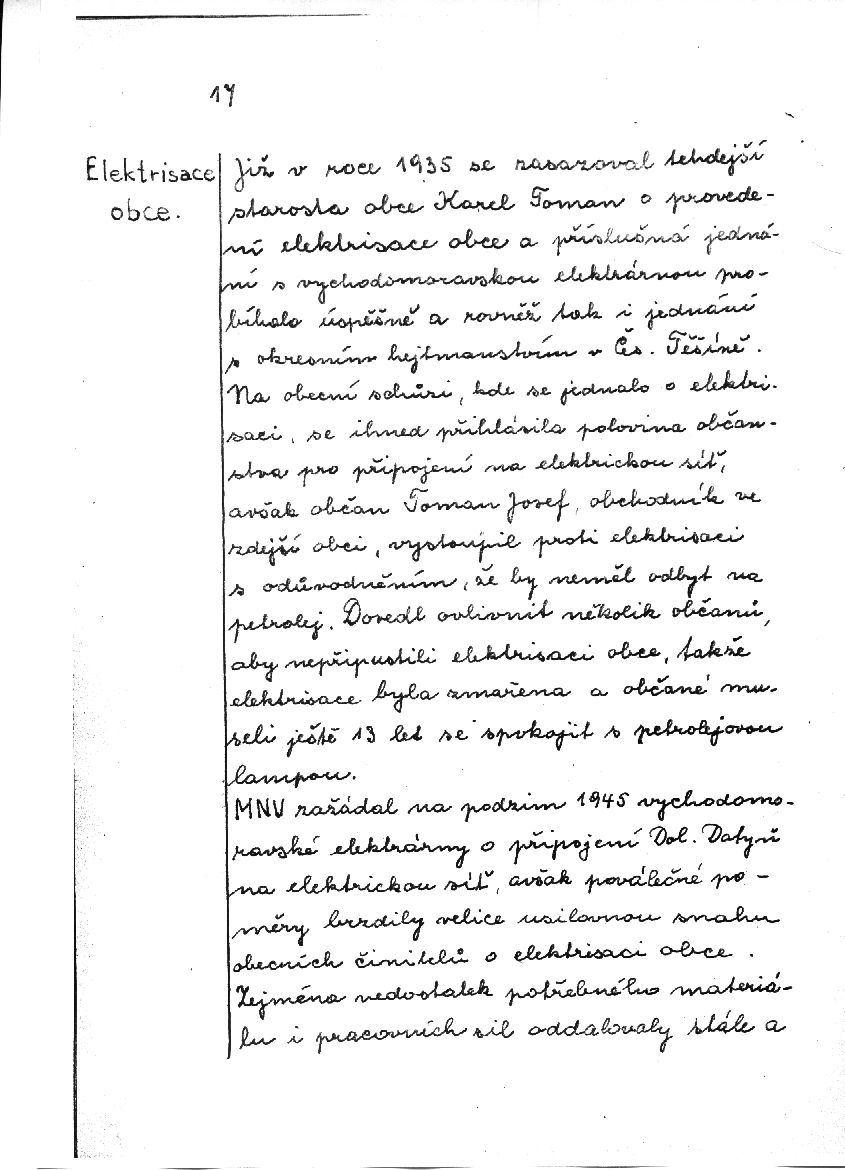 17
Elektrisace
obce.
Již v roce 1935 se zasazoval tehdejší
starosta obce Karel Toman o provede-
ní elektrisace obce a příslušná jedná-
ní s vychodomoravskou elektrárnou pro-
bíhalo úspěšně a rovněž tak i jednání
s okresním hejtmanstvím v Čes. Těšíně.
Na obecní schůzi, kde se jednalo o elektri-
saci, se ihned přihlásila polovina občan-
stva pro připojení na elektrickou síť,
avšak občan Toman Josef, obchodník ve
zdejší obci, vystoupil proti elektrisaci
s odůvodněním, že by neměl odbyt na
petrolej. Dovedl ovlivnit několik občanů,
aby nepřipustili elektrisaci obce, takže
elektrisace byla zmařena a občané mu-
seli ještě 13 let se spokojit s petrolejovou
lampou.
MNV zažádal na podzim 1945 vychodomo-
ravské elektrárny o připojení Dol. Datyň
na elektrickou síť, avšak poválečné po-
měry brzdily velice usilovnou snahu
obecních činitelů o elektrisaci obce.
Zejména nedostatek potřebného materiá-
lu i pracovních sil oddalovaly stále a